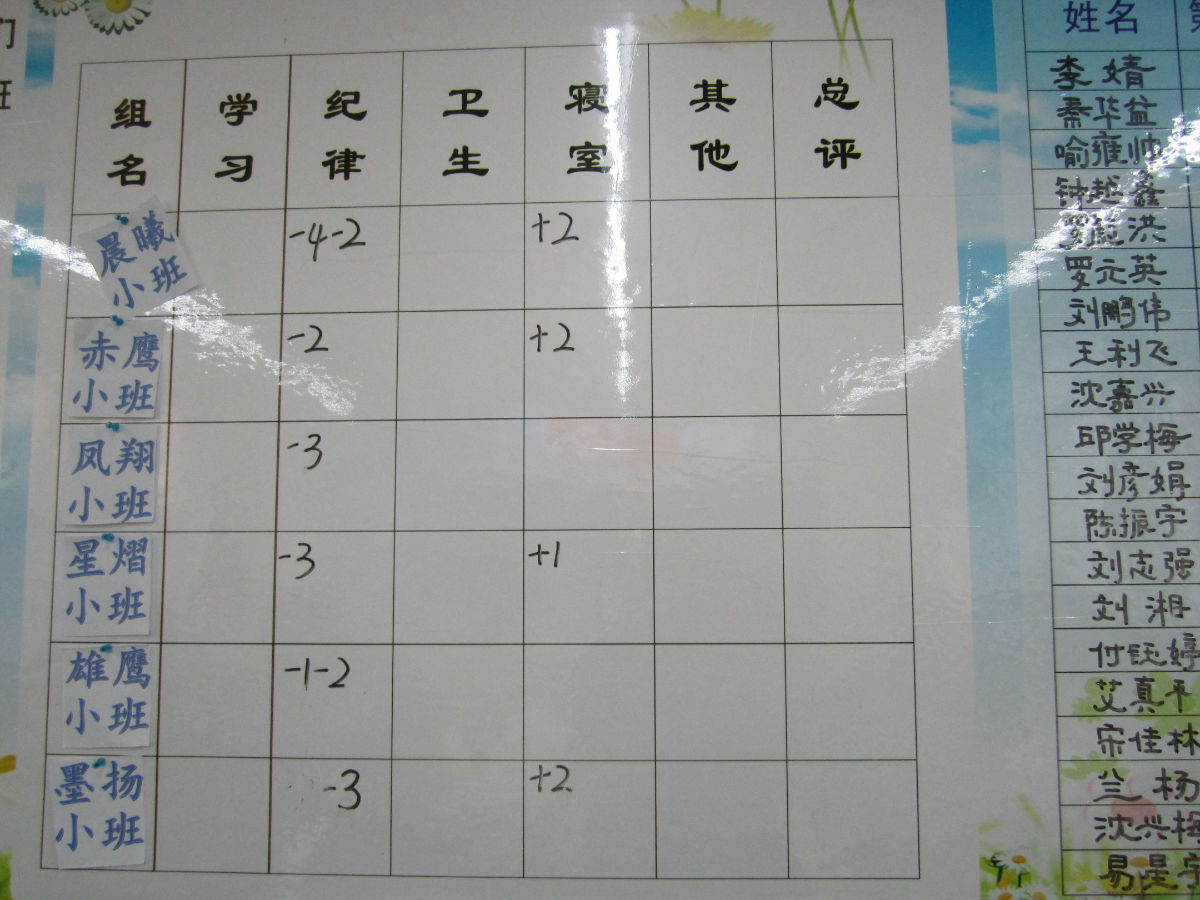 们
班
组名 学习 纪律 卫生 寝室 其他 总评
晨曦小班 -4-2 +2
赤鹰小班 -2 +2
凤翔小班 -3
星熠小班 -3 +1
雄鹰小班 -1-2
墨扬小班 -3 +2
姓名
李婧
华益
喻雍帅
钟越鑫
洪
罗元英
刘鹏伟
王利飞
沈嘉兴
邱学梅
刘彦娟
陈振宇
刘志强
刘湘
付钰婷
艾真平
宋佳林
兰杨
沈兴梅
易星宇